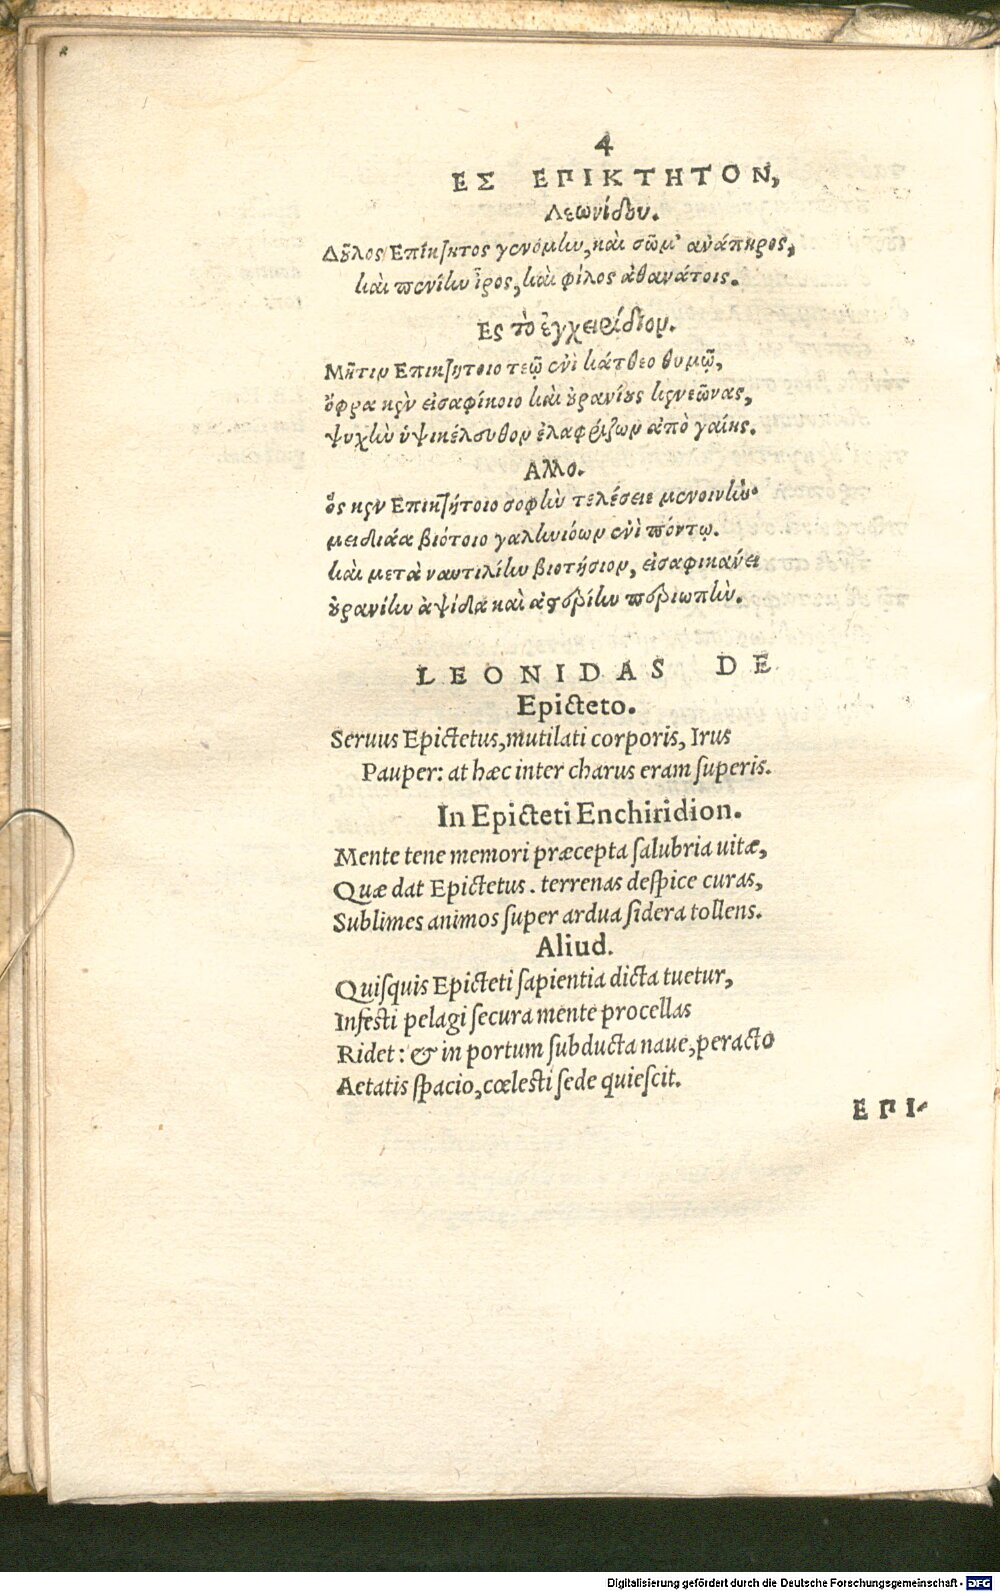 4
ΕΣ ΕΠΙΚΤΗΤΟΝ,
Λεωνίδου.
Δοῦλος Ἐπίκτητος γενόμην, καὶ σῶμ' ἀνάπηρος,
καὶ πενίην ἶρος, καὶ φίλος ἀθανάτοις.
Ες τὸ ἐγχειρίδιον.
Μῆτιν Επικτήτοιο τεῷ ἐνὶ κάτθεο θυμῷ,
ὄφρα κεν εἰσαφίκοιο καὶ οὐρανίους κενεῶνας,
ψυχὴν ὑψικέλευθον ἐλαφρίζων ἀπὸ γαίης.
Αλλο.
ὅς κεν Επικτήτοιο σοφὴν τελέσειε μενοινὴν
μειδιάα βιότοιο γαληνιόων ἐνὶ πόντῳ.
καὶ μετὰ ναυτιλίην βιοτήσιον, εἰσαφικανει
οὐρανίην ἁψῖδα καὶ ἀστερίην περιωπὴν.
LEONIDAS DE
Epicteto.
Seruus Epictetus, mutilati corporis, Irus
Pauper: at hæc inter charus eram ſuperis.
In Epicteti Enchiridion.
Mente tene memori præcepta ſalubria uitæ,
Quæ dat Epictetus. terrenas deſpice curas,
Sublimes animos ſuper ardua ſidera tollens.
Aliud.
Quiſquis Epicteti ſapientia dicta tuetur,
Infeſti pelagi ſecura mente procellas
Ridet: & in portum ſubducta naue, peracto
Aetatis ſpacio, cœleſti ſede quieſcit.
ΕΠΙ-
Digitalisierung gefördert durch die Deutsche Forschungsgemeinschaft - DFG